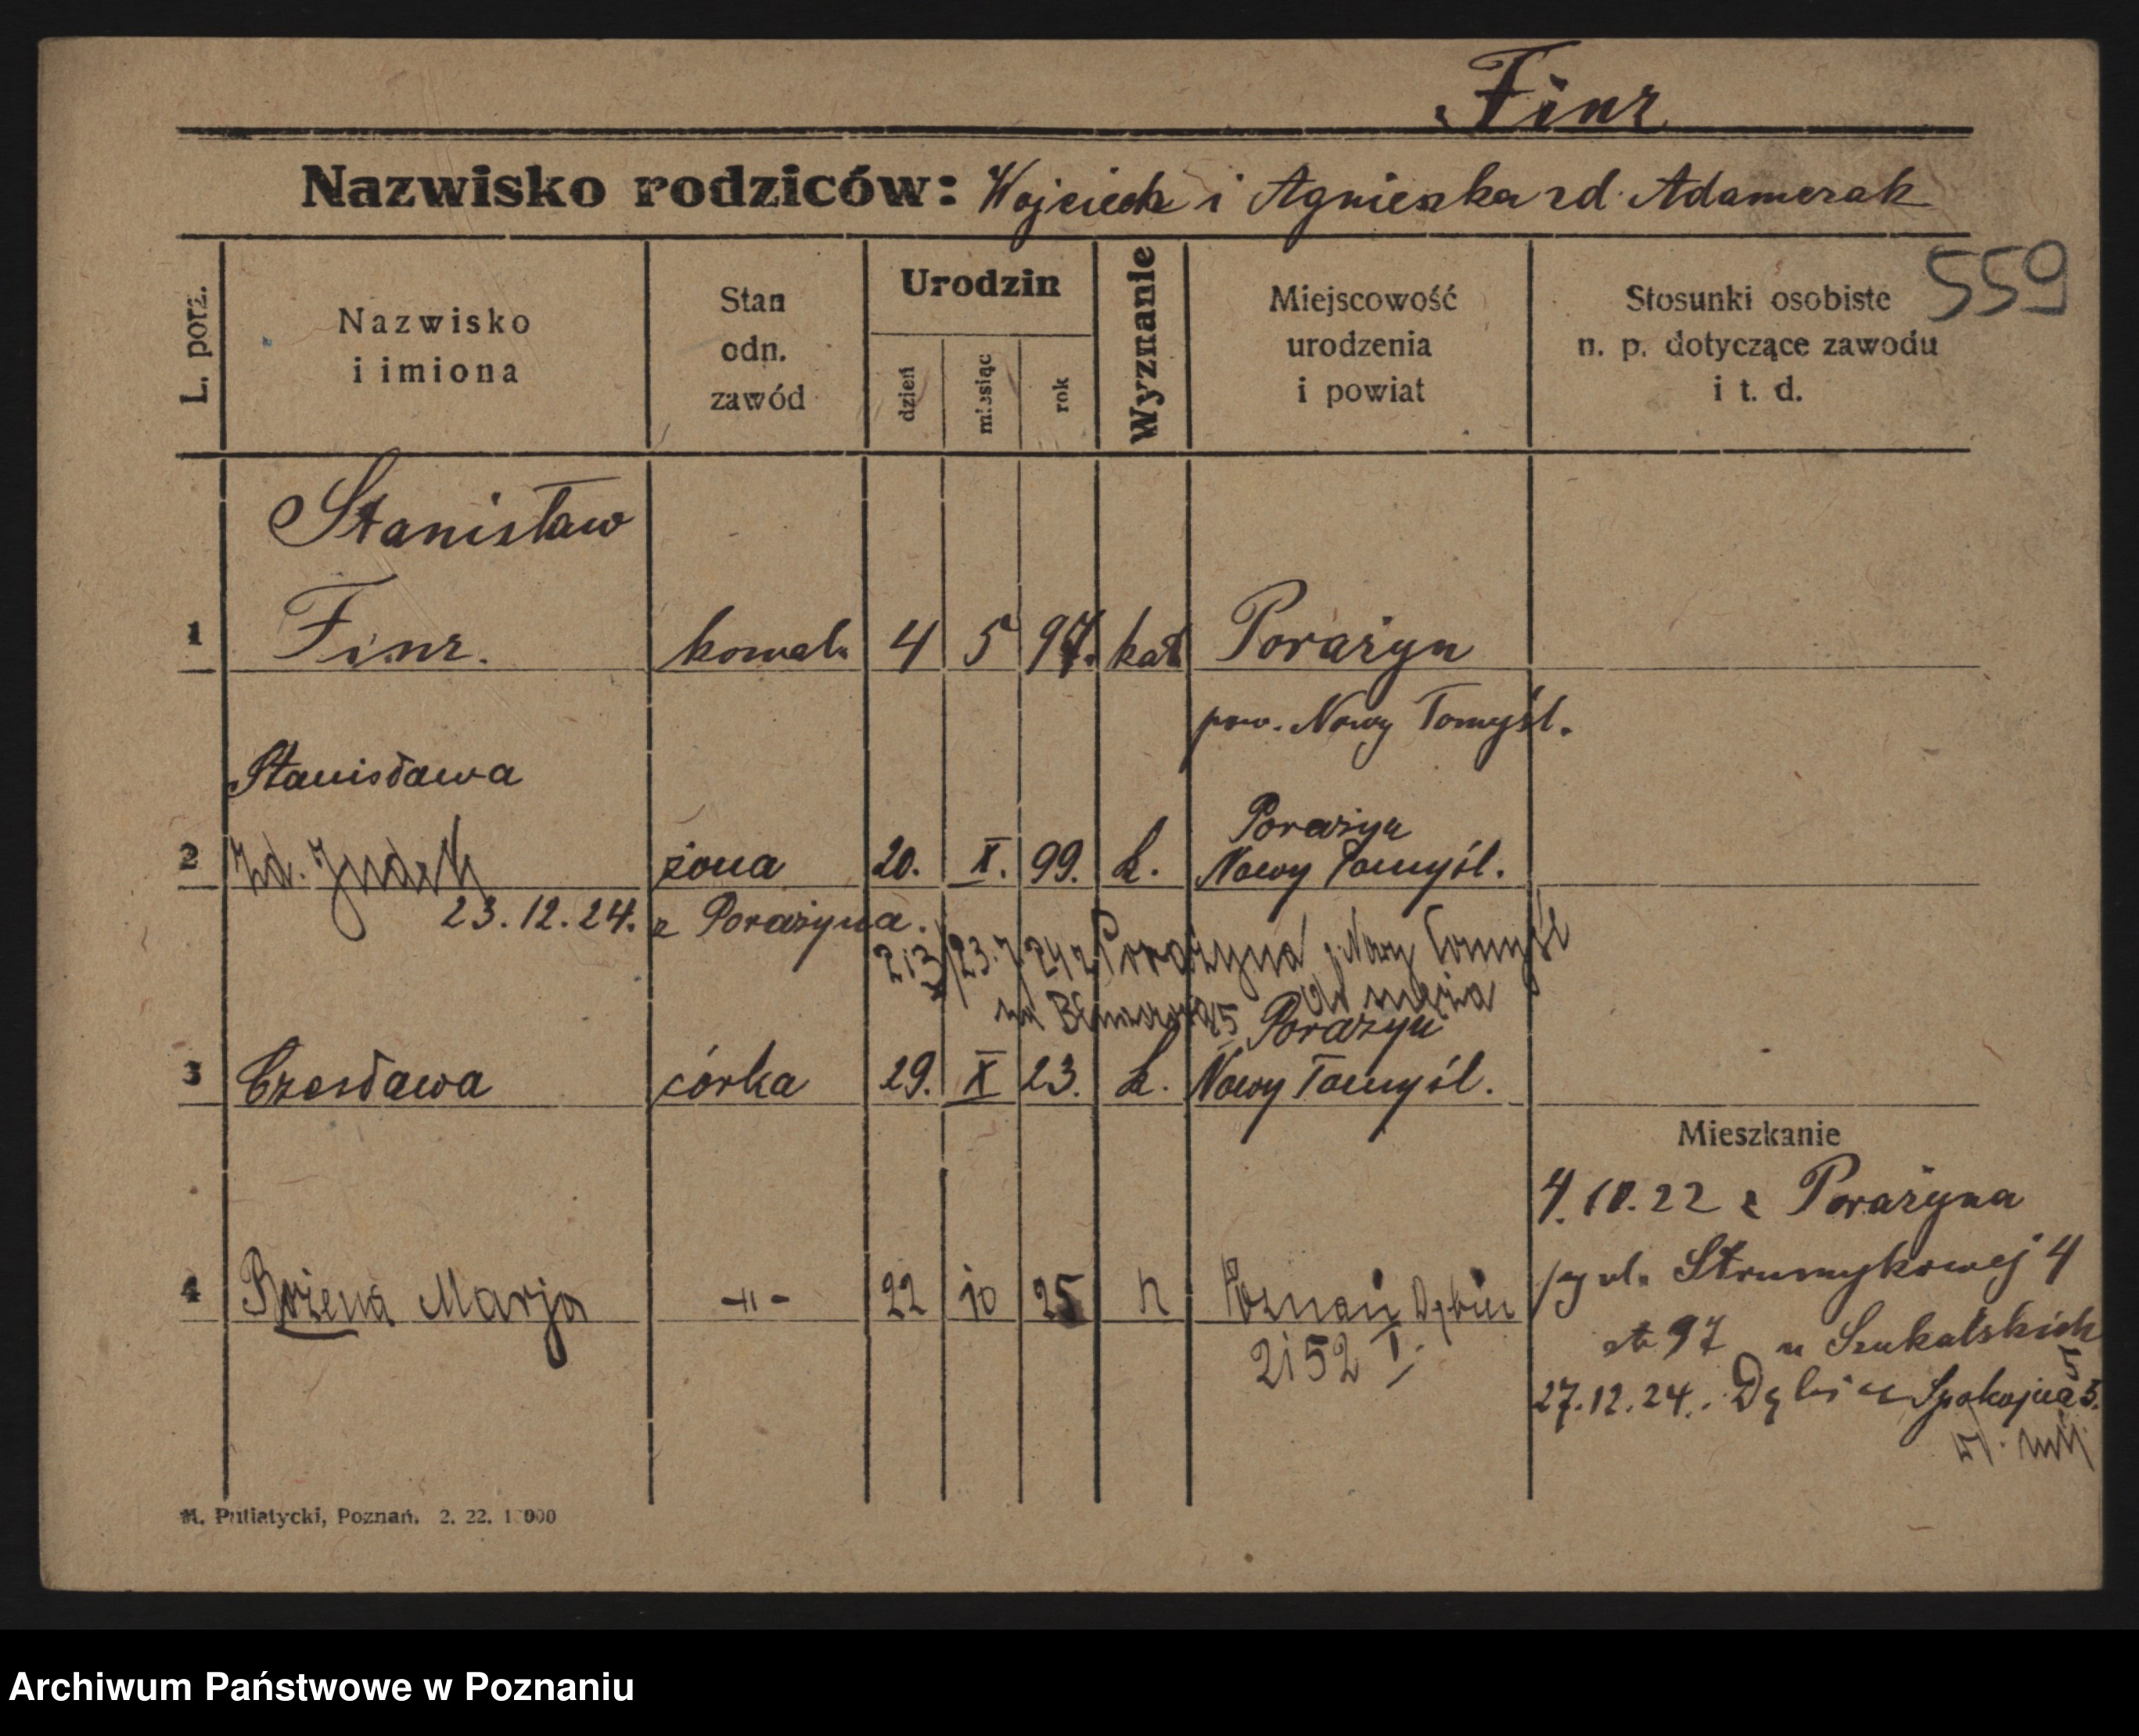 Finz
Nazwisko rodziców: Wojciech i Agnieszka zd. Adamczak
559
L. porz.
Nazwisko i imiona
Stan odn. zawód
Urodzin
dzień
miesiąc
rok
Wyznanie
Miejscowość urodzenia i powiat
Stosunki osobiste n. p. dotyczące zawodu i t. d.
Stanisław
1 Finz. kowal. 4 5 97. kat Porażyn
pow. Nowy Tomyśl.
Stanisława
Porażyn
2 zd. żona 20. X. 99. k. Nowy Tomyśl.
23.12.24. z Porażyna.
213/23.7/24 z Porażyna Nowy Tomyśl
do męża
Porażyn
3 Czesława córka 29. X 23. k. Nowy Tomyśl.
Mieszkanie
4.10.22 z Porażyna
ul. Strumykowej 4
4 Bożena Marja -"- 22 10 25 k Poznań Dębiec
2152 I.
97 u Szukalskich
27.12.24. Dębiec Spokojna 5.
M. Putiatycki, Poznań. 2. 22. 1 000
Archiwum Państwowe w Poznaniu